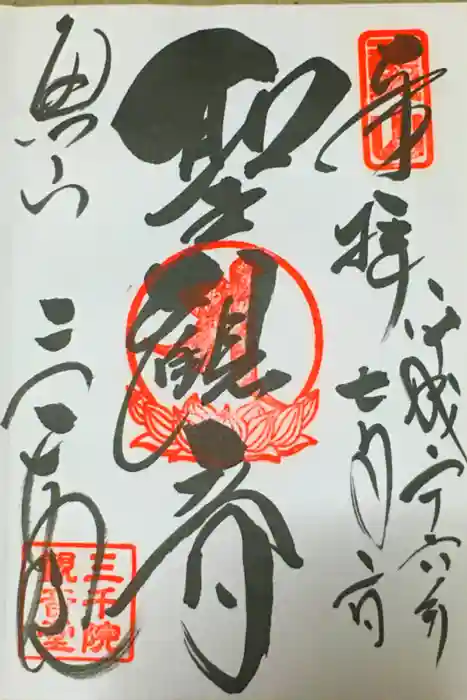 奉拝
平成廿六年
七月二日
聖観音
魚山
三千院
三千院
観音堂